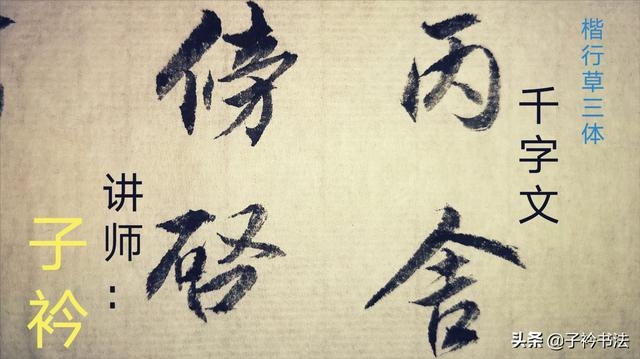 楷行草三体
千字文
丙舍
傍啓
讲师:
子衿
头条 @子衿书法